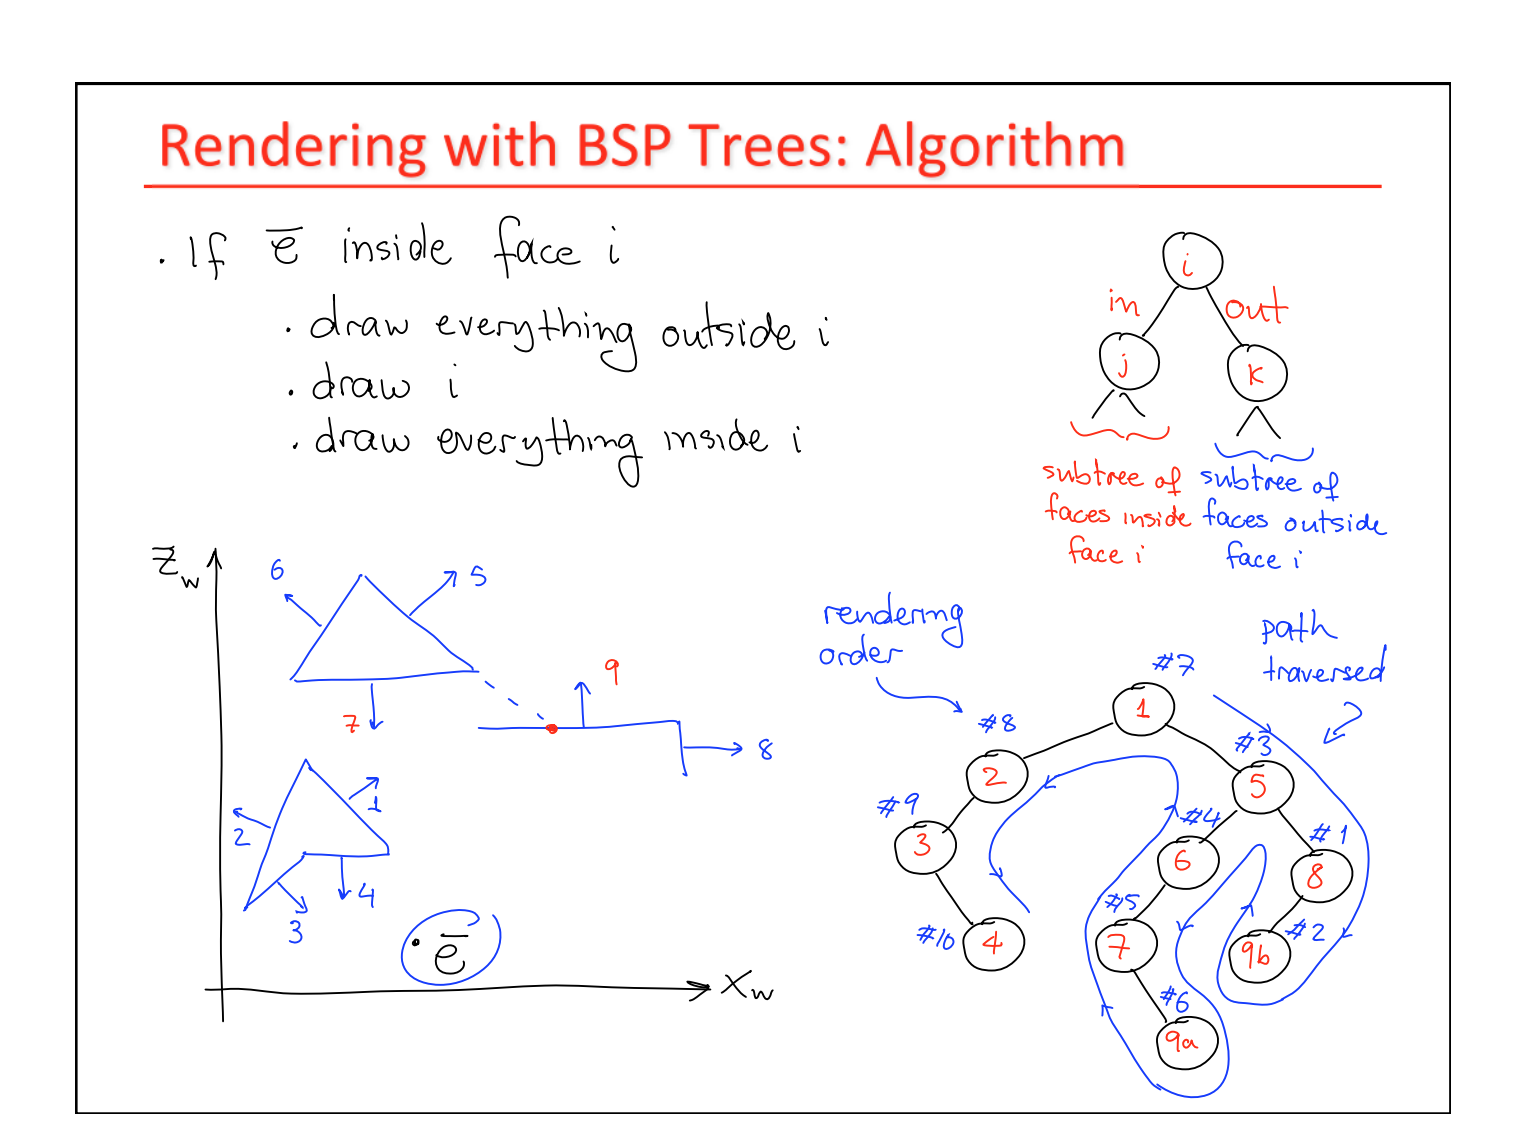 Rendering with BSP Trees: Algorithm
. If e̅ inside face i
. draw everything outside i
. draw i
. draw everything inside i
i
in out
j k
subtree of faces inside face i
subtree of faces outside face i
Zw
6 5
9
7
8
1
2
4
3
. e̅
Xw
rendering
order
path
traversed
#7
1
#8 #3
2 5
#9 #4 #1
3 6 8
#5 #2
#10 4 7 9b
#6
9a